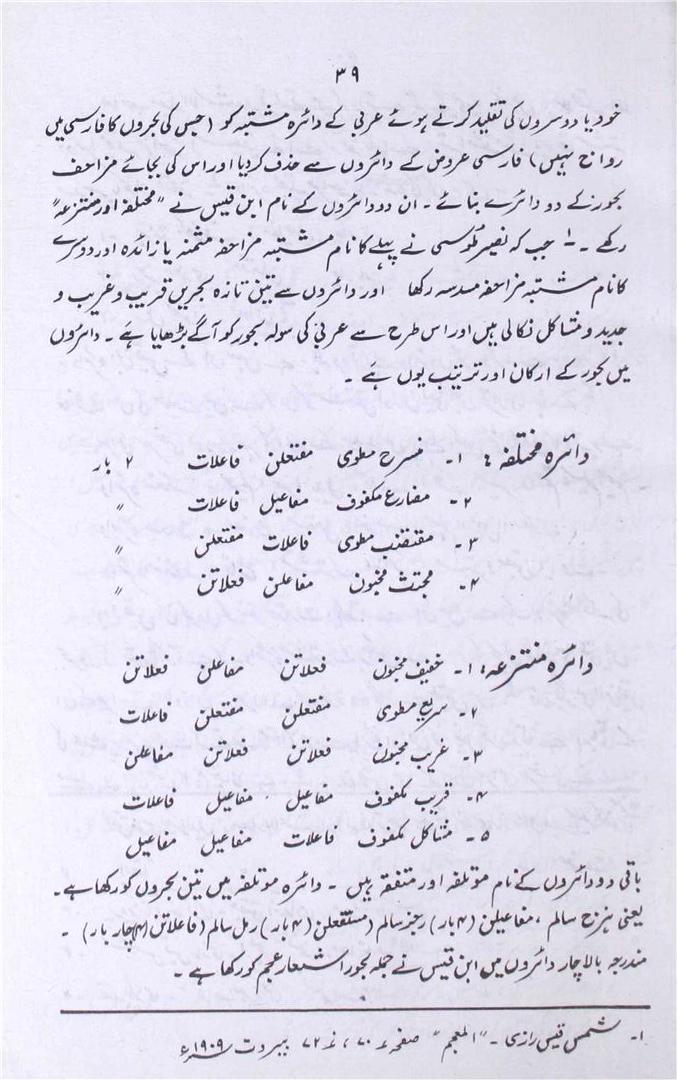 ۳۹
خود یا دوسروں کی تقلید کرتے ہوئے عربی کے دائرہ مشتبہ کو (جس کی بحروں کا فارسی میں
رواج نہیں) فارسی عروض کے دائروں سے حذف کردیا اور اس کی بجائے مزاحف
بحور کے دو دائرے بنائے ۔ ان دو دائروں کے نام ابن قیس نے "مختلفہ اور منتزعہ"
رکھے ۔۱ جب کہ نصیر طوسی نے پہلے کا نام مشتبہ مزاحفہ مثمنہ یا زائدہ اور دوسرے
کا نام مشتبہ مزاحفہ مسدسہ رکھا اور دائروں سے تین تازہ بحریں قریب و غریب و
جدید و مشاکل نکالی ہیں اور اس طرح سے عربی کی سولہ بحور کو آگے بڑھایا ہے ۔ دائروں
میں بحور کے ارکان اور ترتیب یوں ہے ۔
دائرہ مختلفہ : ۱- منسرح مطوی مفتعلن فاعلات ۲ بار
۲- مضارع مکفوف مفاعیل فاعلات "
۳- مقتضب مطوی فاعلات مفتعلن "
۴- مجتث مخبون مفاعلن فعلاتن "
دائرہ منتزعہ : ۱- خفیف مخبون فعلاتن مفاعلن فعلاتن
۲- سریع مطوی مفتعلن مفتعلن فاعلات
۳- غریب مخبون فعلاتن فعلاتن مفاعلن
۴- قریب مکفوف مفاعیل مفاعیل فاعلات
۵- مشاکل مکفوف فاعلات مفاعیل مفاعیل
باقی دو دائروں کے نام موتلفہ اور متفقہ ہیں ۔ دائرہ موتلفہ میں تین بحروں کو رکھا ہے۔
یعنی ہزج سالم ، مفاعیلن (۴ بار) رجز سالم (مستفعلن (۴ بار) رمل سالم (فاعلاتن (۴) چار بار) ۔
مندرجہ بالا چار دائروں میں ابن قیس نے جملہ بحور اشعار عجم کو رکھا ہے ۔
۱- شمس قیس رازی ۔ "المعجم" صفحہ ۷۰ ، ۷۲ بیروت ۱۹۰۹ء